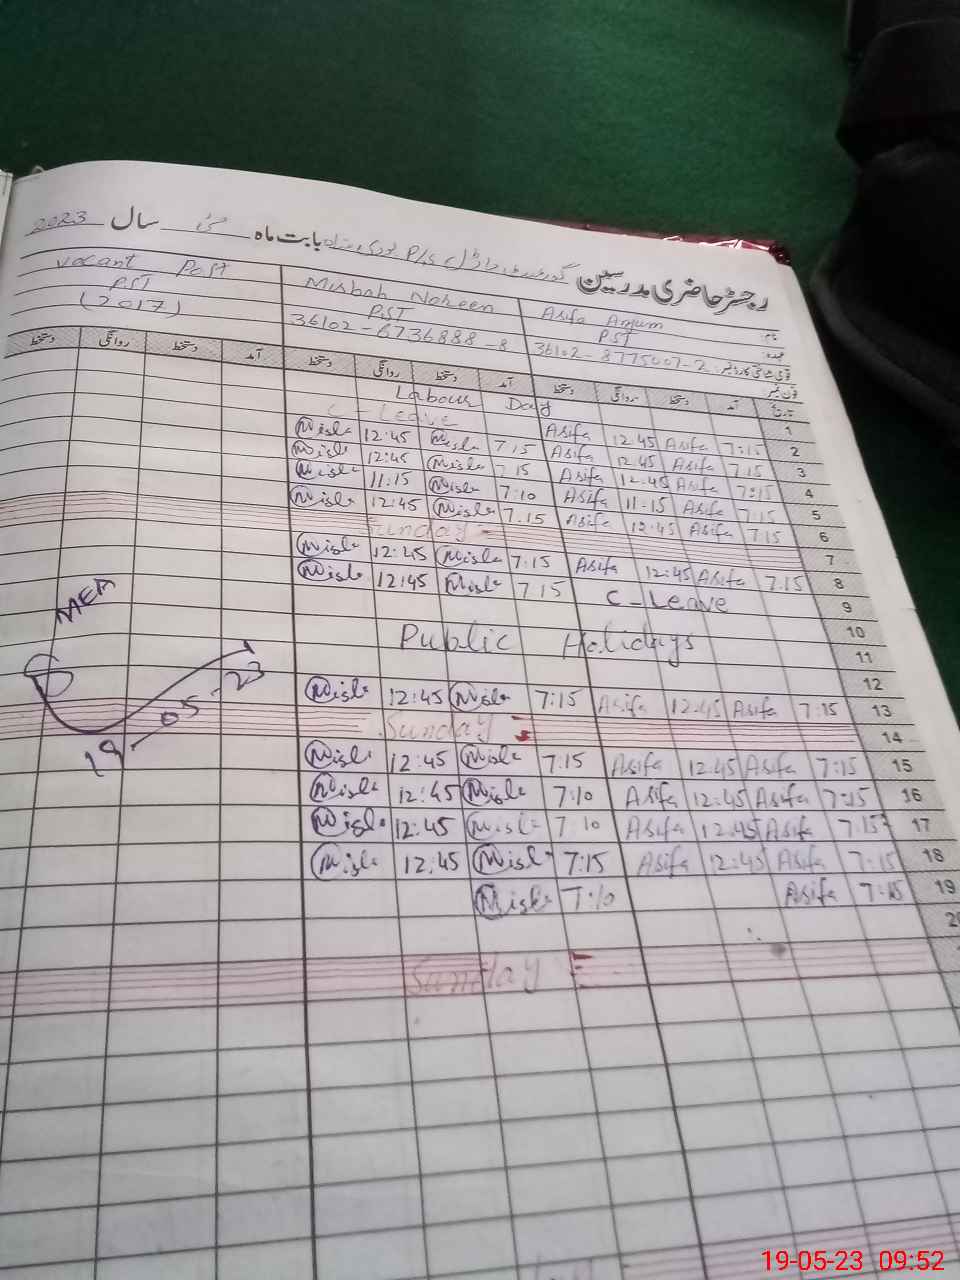 رجسٹر حاضری مدرسین P/S بابت ماہ مئی سال 2023
نام: Asifa Anjum Misbah Noreen vacant Post
عہدہ: PST PST PST
قومی شناختی کارڈ نمبر: 36102-8775007-2 36102-6736888-8 (2017)
فون نمبر:
تاریخ آمد دستخط روانگی دستخط آمد دستخط روانگی دستخط آمد دستخط روانگی دستخط
1 Labour Day
2 7:15 Asifa 12:45 Asifa C-Leave
3 7:15 Asifa 12:45 Asifa 7:15 Misb 12:45 Misb
4 7:15 Asifa 12:45 Asifa 7:15 Misb 12:45 Misb
5 7:15 Asifa 11:15 Asifa 7:10 Misb 11:15 Misb
6 7:15 Asifa 12:45 Asifa 7:15 Misb 12:45 Misb
7 Sunday
8 7:15 Asifa 12:45 Asifa 7:15 Misb 12:45 Misb
9 C-Leave 7:15 Misb 12:45 Misb
10
11 Public Holidays
12
13 7:15 Asifa 12:45 Asifa 7:15 Misb 12:45 Misb
14 Sunday
15 7:15 Asifa 12:45 Asifa 7:15 Misb 12:45 Misb
16 7:15 Asifa 12:45 Asifa 7:10 Misb 12:45 Misb
17 7:15 Asifa 12:45 Asifa 7:10 Misb 12:45 Misb
18 7:15 Asifa 12:45 Asifa 7:15 Misb 12:45 Misb
19 7:15 Asifa 7:10 Misb
20
Sunday
MEA
19-05-23
19-05-23 09:52